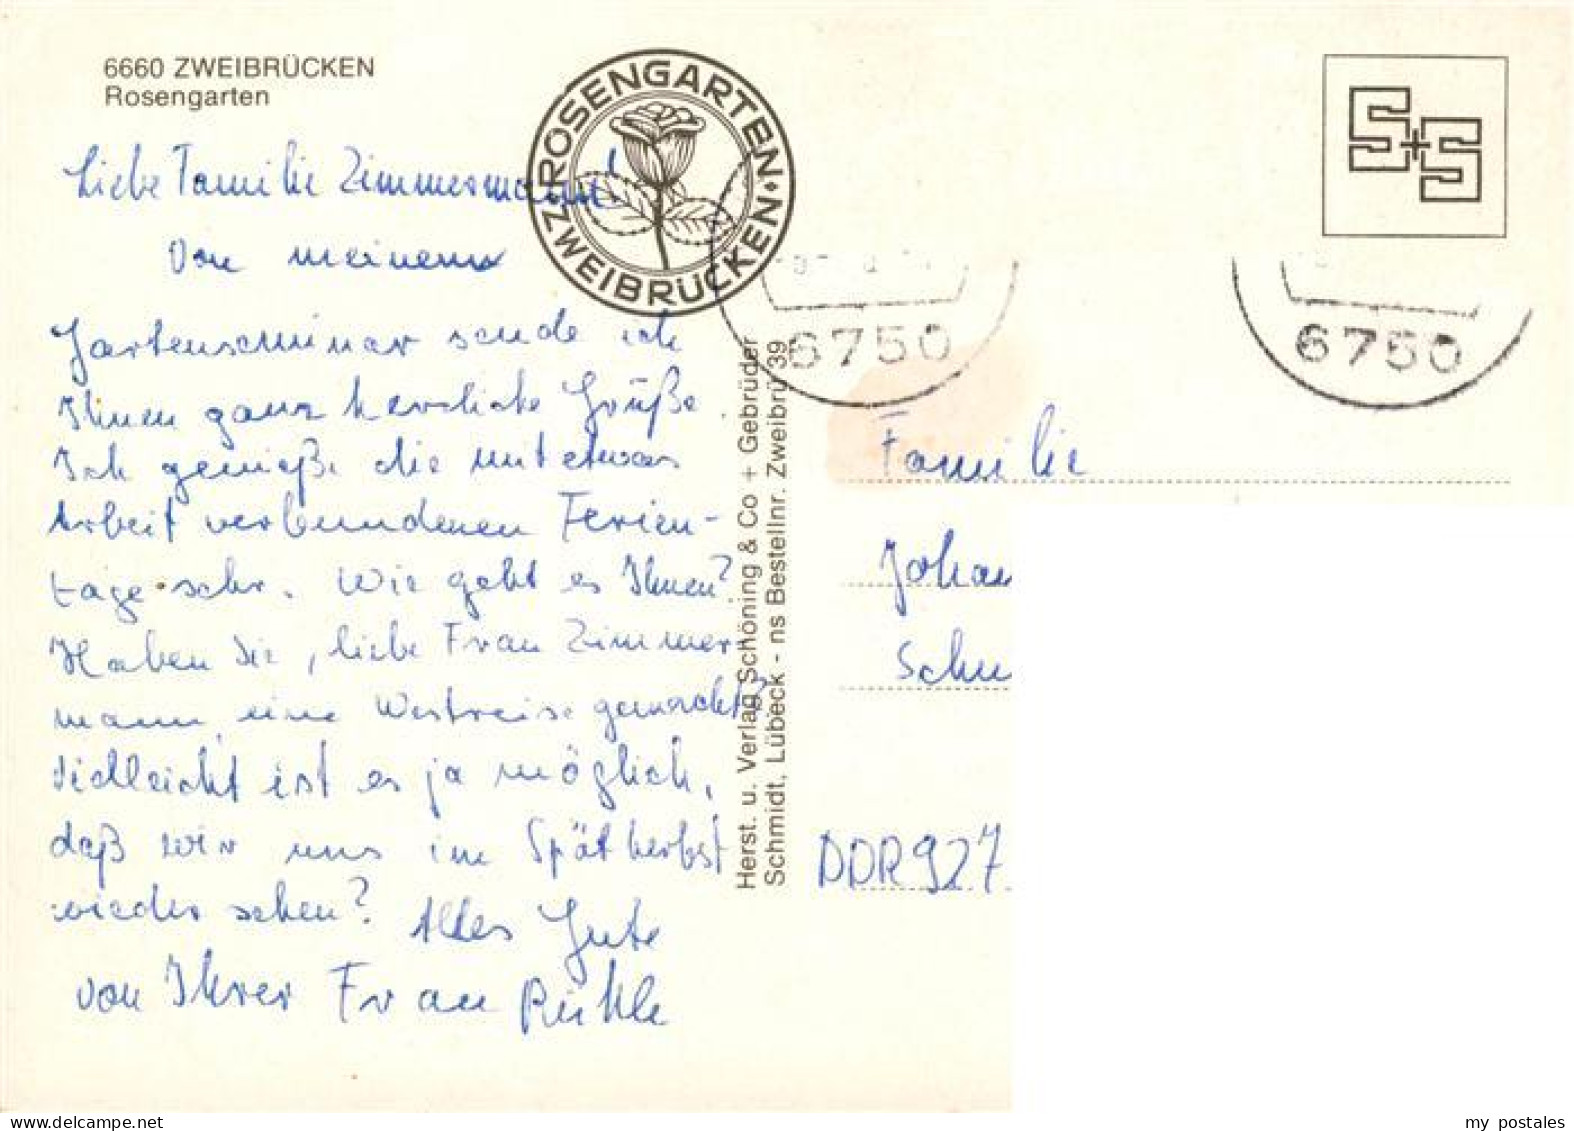 6660 ZWEIBRÜCKEN
Rosengarten
ROSENGARTEN
ZWEIBRÜCKEN
S+S
Liebe Familie Zimmermann!
Von meinem
Gartenseminar sende ich
Ihnen ganz herzliche Grüße.
Ich genieße die mit etwas
Arbeit verbundenen Ferien-
tage sehr. Wie geht es Ihnen?
Haben Sie, liebe Frau Zimmer-
mann, eine Westreise gemacht?
Vielleicht ist es ja möglich,
daß wir uns im Spätherbst
wieder sehen? Alles Gute
von Ihrer Frau
Herst. u. Verlag Schöning & Co + Gebrüder
Schmidt, Lübeck - ns Bestellnr. Zweibrü 39
6750
6750
Familie
Johan
Schu
DDR 927
delcampe.net
my postales